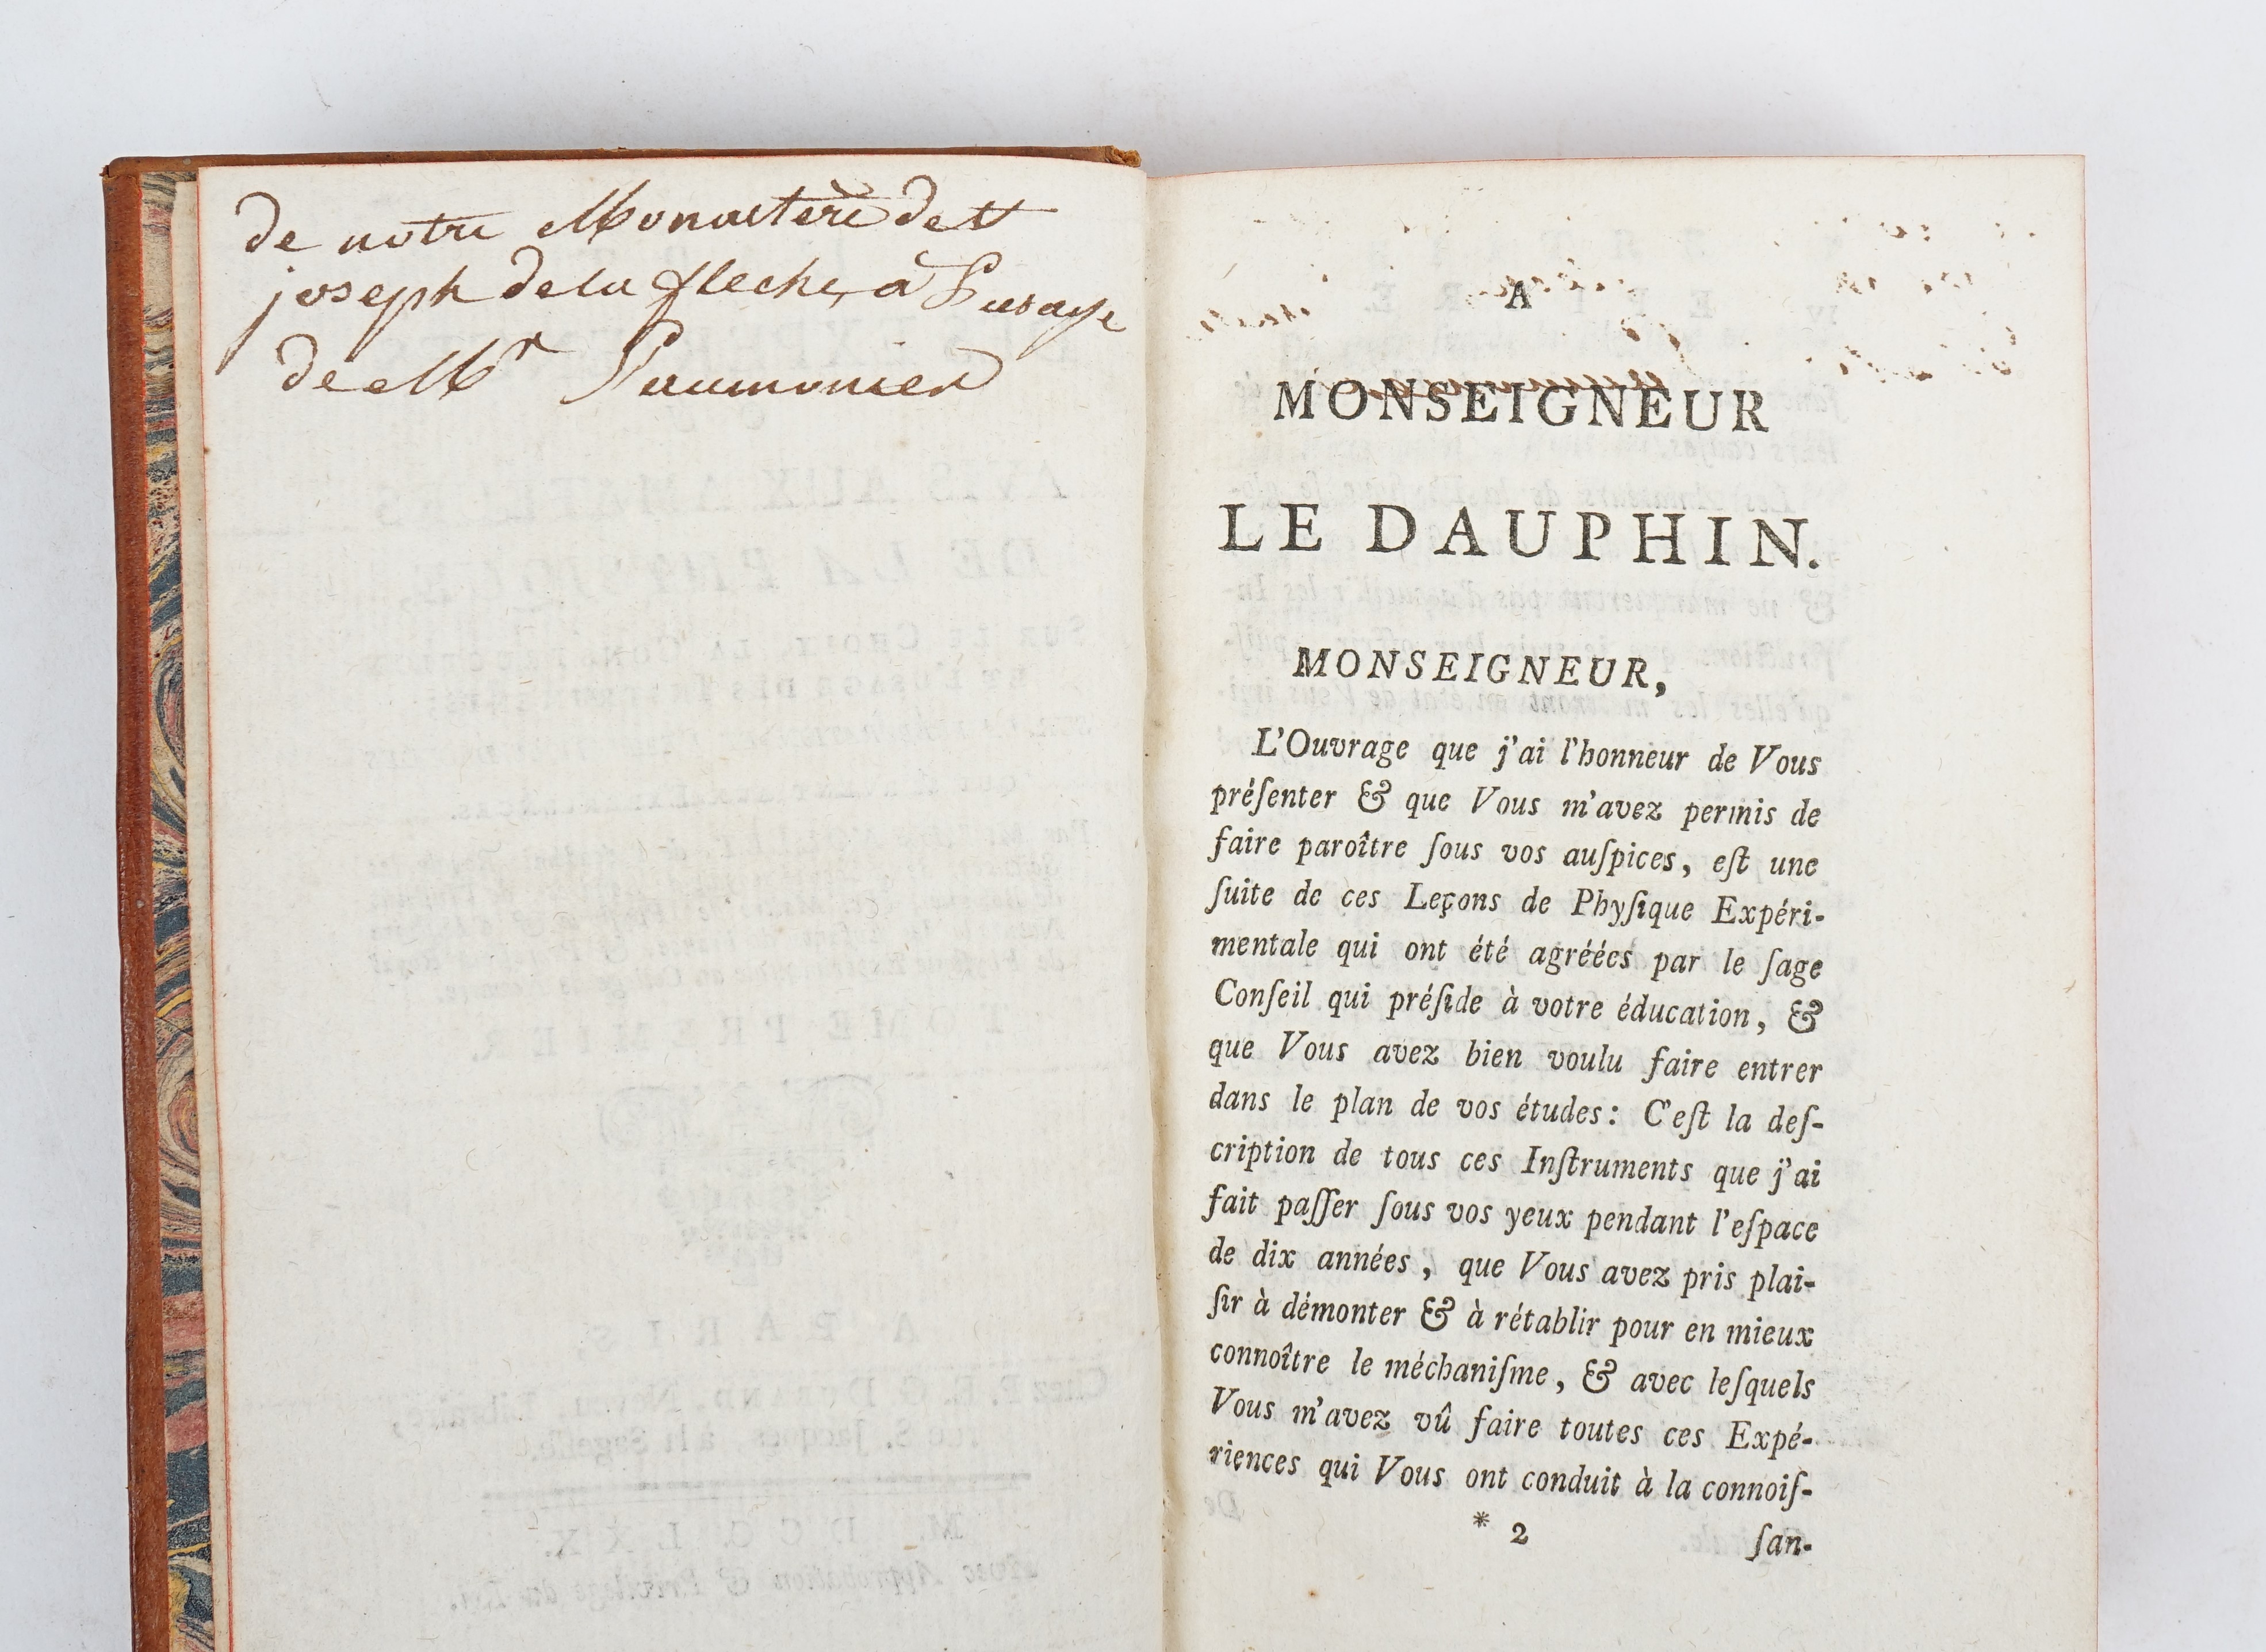 de notre Monastere de st
joseph de la fleche, a L'usage
de Mr L'aumonier
A
MONSEIGNEUR
LE DAUPHIN.
MONSEIGNEUR,
L'Ouvrage que j'ai l'honneur de Vous
préſenter & que Vous m'avez permis de
faire paroître ſous vos auſpices, eſt une
ſuite de ces Leçons de Phyſique Expéri-
mentale qui ont été agréées par le ſage
Conſeil qui préſide à votre éducation, &
que Vous avez bien voulu faire entrer
dans le plan de vos études: C'eſt la deſ-
cription de tous ces Inſtruments que j'ai
fait paſſer ſous vos yeux pendant l'eſpace
de dix années, que Vous avez pris plai-
ſir à démonter & à rétablir pour en mieux
connoître le méchaniſme, & avec leſquels
Vous m'avez vû faire toutes ces Expé-
riences qui Vous ont conduit à la connoiſ-
* 2 ſan-